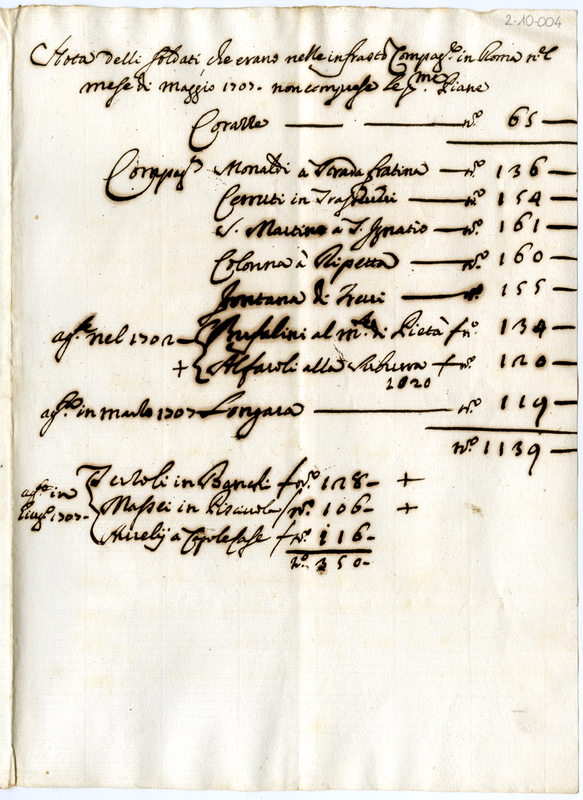 2-10-004
Nota delli soldati che erano nelle infrastte Compagne in Roma nel
mese di maggio 1707. non comprese le pme Piane
Corazze — — nº. 65 —
Compage Monaldi à Strada fratina — nº. 136 —
Cerruti in — nº. 154 —
S. Martino à S. Ignatio — nº. 161 —
Colonna à Ripetta — nº. 160 —
Fontana di Trevi — nº. 155 —
nel 1702 — Bufalini al mte di Pietà nº. 134 —
+ Alfaroli alla Suburra nº. 120 —
1020
in marzo 1707 Longara — nº. 119 —
nº. 1139 —
Zertoli in Banchi nº. 128 — +
in Massei in Piscivola nº. 106 — +
1707 — Aurelij a Capolecase nº. 116 —
nº. 350 —